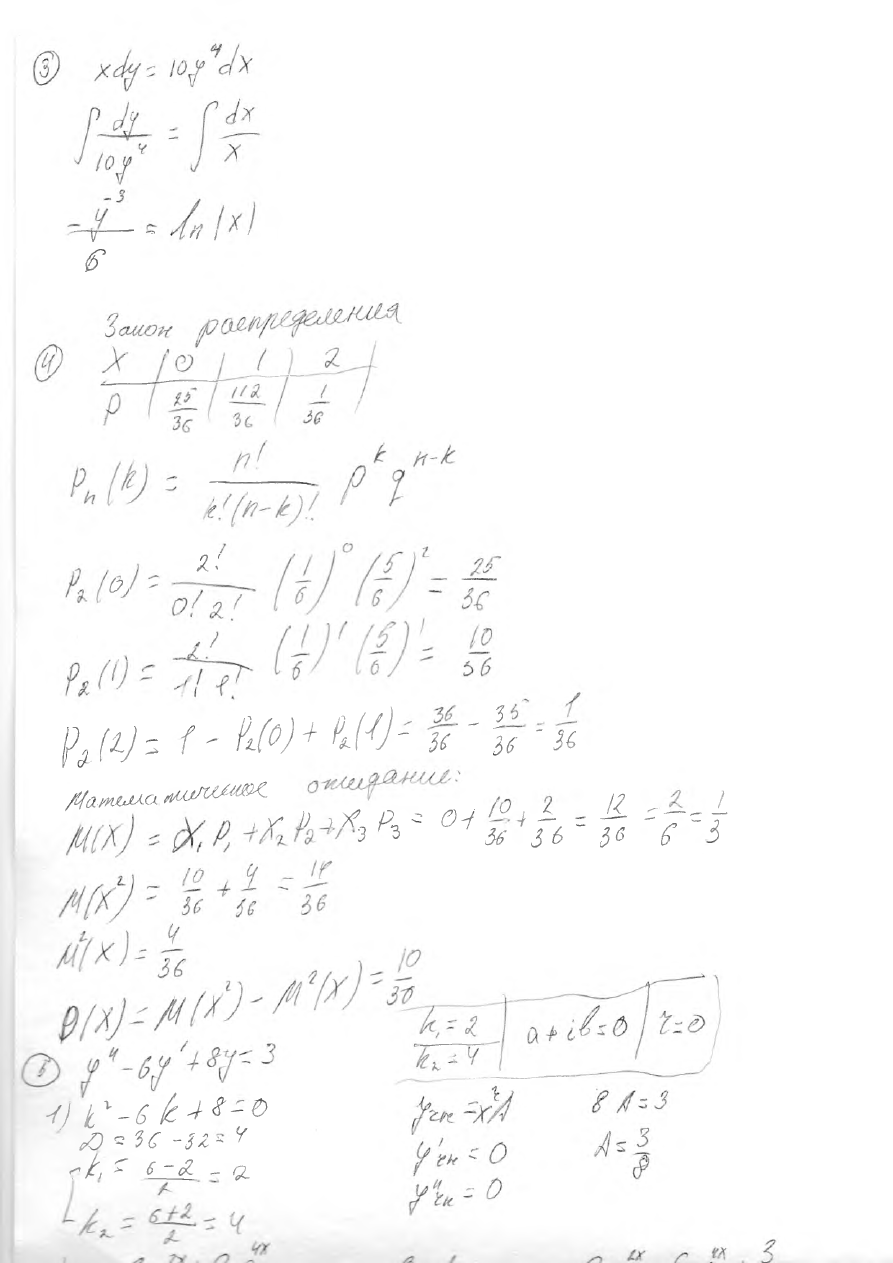 ③ xdy = 10y⁴dx
∫ dy/10y⁴ = ∫ dx/x
= y⁻³/6 = ln|x|
Закон распределения
④ X | 0 | 1 | 2
P | 25/36 | 112/36 | 1/36
Pₙ(k) = n!/k!(n-k)! p^k q^(n-k)
P₂(0) = 2!/0! 2! (1/6)⁰ (5/6)² = 25/36
P₂(1) = 2!/1! 1! (1/6)¹ (5/6)¹ = 10/36
P₂(2) = 1 - P₂(0) + P₂(1) = 36/36 - 35/36 = 1/36
Математическое ожидание:
M(X) = X₁P₁ + X₂P₂ + X₃P₃ = 0 + 10/36 + 2/36 = 12/36 = 2/6 = 1/3
M(X²) = 10/36 + 4/36 = 14/36
M²(X) = 4/36
D(X) = M(X²) - M²(X) = 10/36
k₁ = 2 | a + ib = 0 | r = 0
k₂ = 4
⑤ y'' - 6y' + 8y = 3
1) k² - 6k + 8 = 0
D = 36 - 32 = 4
k₁ = (6-2)/2 = 2
k₂ = (6+2)/2 = 4
yчн = x^r A
y'чн = 0
y''чн = 0
8A = 3
A = 3/8